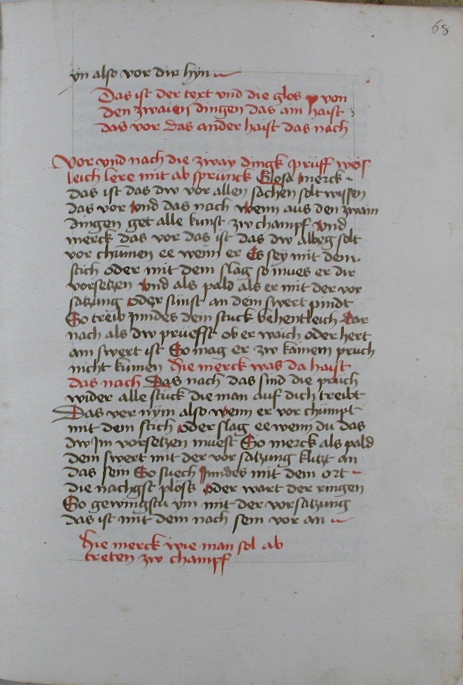 68
ÿn also vor dir hÿn
Das ist der text vnd die glos von
den zwaien dingen das ain haist
das vor das ander haist das nach
Vor vnd nach die zwaÿ dingk prüff weis
leich lere mit ab sprunck Glosa merck
das ist das dw vor allen sachen solt wissen
das vor vnd das nach wenn aus den zwain
dingen get alle kunst zw champf vnd
merck das vor das ist das dw albeg solt
vor chumen ee wenn er Es seÿ mit dem
stich oder mit dem slag so mues er dir
vorsetzen vnd als pald als er mit der vor
satzung oder sünst an dem swert pindt
So treib pindes dein stuck behentleich dar
nach als dw prueffst ob er waich oder hert
am swert ist So mag er zw kainem pruch
nicht kumen Hie merck was da haist
das nach Das nach das sind die pruch
wider alle stuck die man auf dich treibt
Das ver nÿm also wenn er vor chumpt
mit dem stich oder slag ee wenn du das
dw im vorsetzen muest So merck als pald
dem swert mit der vor satzung klitzt an
das sein So suech Indes mit dem ort
die nachgst ploss oder wart der ringen
So gewingstu ÿm mit der vorsatzung
das ist mit dem nach sein vor an
Hie merck wie man sol ab
treten zw champf